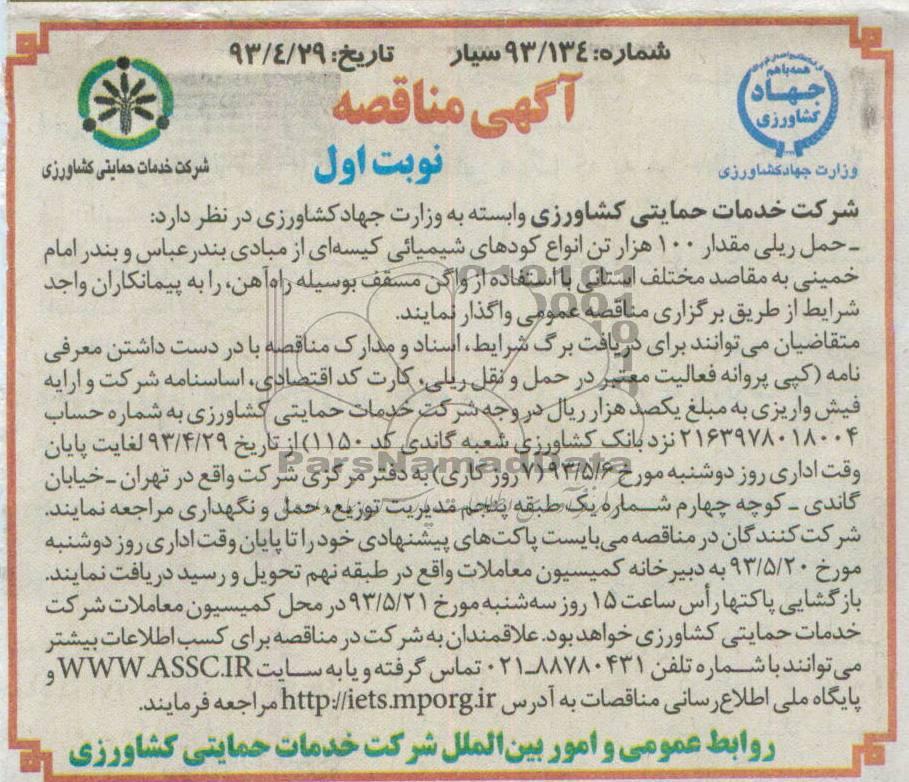 شماره: ۹۳/۱۳٤ سیار
تاریخ: ۹۳/٤/۲۹
همه با هم
جهاد
کشاورزی
وزارت جهاد کشاورزی
آگهی مناقصه
نوبت اول
شرکت خدمات حمایتی کشاورزی
شرکت خدمات حمایتی کشاورزی وابسته به وزارت جهادکشاورزی در نظر دارد:
ـ حمل ریلی مقدار ۱۰۰ هزار تن انواع کودهای شیمیائی کیسه‌ای از مبادی بندرعباس و بندر امام
خمینی به مقاصد مختلف استانی با استفاده از واگن مسقف بوسیله راه‌آهن، را به پیمانکاران واجد
شرایط از طریق برگزاری مناقصه عمومی واگذار نمایند.
متقاضیان می‌توانند برای دریافت برگ شرایط، اسناد و مدارک مناقصه با در دست داشتن معرفی
نامه (کپی پروانه فعالیت معتبر در حمل و نقل ریلی، کارت کد اقتصادی، اساسنامه شرکت و ارایه
فیش واریزی به مبلغ یکصد هزار ریال در وجه شرکت خدمات حمایتی کشاورزی به شماره حساب
۲۱۶۳۹۷۸۰۱۸۰۰۴ نزد بانک کشاورزی شعبه گاندی کد ۱۱۵۰) از تاریخ ۹۳/۴/۲۹ لغایت پایان
وقت اداری روز دوشنبه مورخ ۹۳/۵/۶ (۷ روز کاری) به دفتر مرکزی شرکت واقع در تهران ـ خیابان
گاندی ـ کوچه چهارم شماره یک طبقه پنجم مدیریت توزیع، حمل و نگهداری مراجعه نمایند.
شرکت کنندگان در مناقصه می‌بایست پاکت‌های پیشنهادی خود را تا پایان وقت اداری روز دوشنبه
مورخ ۹۳/۵/۲۰ به دبیرخانه کمیسیون معاملات واقع در طبقه نهم تحویل و رسید دریافت نمایند.
بازگشایی پاکتها رأس ساعت ۱۵ روز سه‌شنبه مورخ ۹۳/۵/۲۱ در محل کمیسیون معاملات شرکت
خدمات حمایتی کشاورزی خواهد بود. علاقمندان به شرکت در مناقصه برای کسب اطلاعات بیشتر
می‌توانند با شماره تلفن ۸۸۷۸۰۴۳۱ـ۰۲۱ تماس گرفته و یا به سایت WWW.ASSC.IR و
پایگاه ملی اطلاع‌رسانی مناقصات به آدرس http://iets.mporg.ir مراجعه فرمایند.
روابط عمومی و امور بین‌الملل شرکت خدمات حمایتی کشاورزی
ParsNamadData